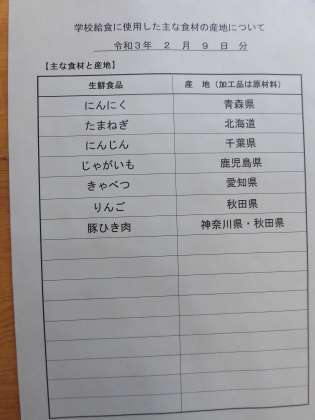 学校給食に使用した主な食材の産地について
令和３年　２　月　９　日　分
【主な食材と産地】
生鮮食品　産　地（加工品は原材料）
にんにく　青森県
たまねぎ　北海道
にんじん　千葉県
じゃがいも　鹿児島県
きゃべつ　愛知県
りんご　秋田県
豚ひき肉　神奈川県・秋田県